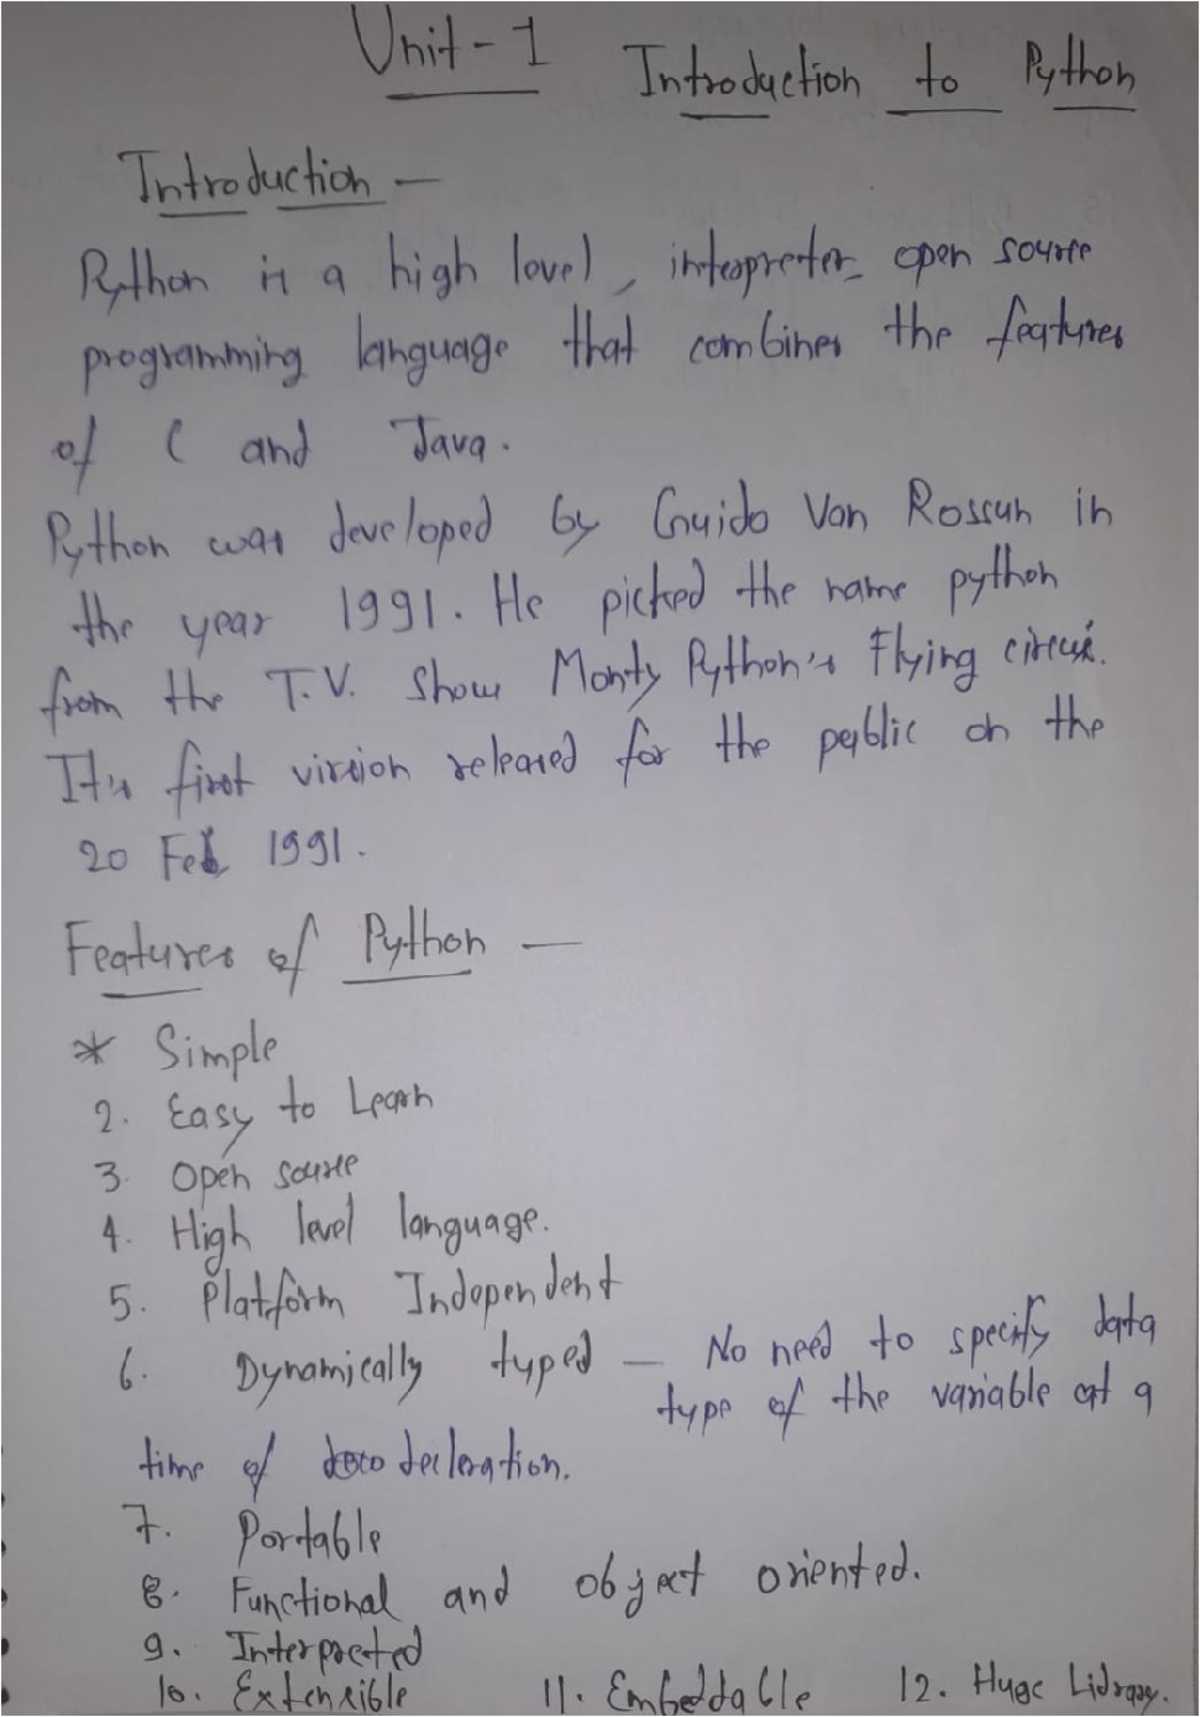 Unit - 1 Introduction to Python
Introduction —
Python is a high level, interpreter, open source
programming language that combines the features
of C and Java.
Python was developed by Guido Van Rossun in
the year 1991. He picked the name python
from the T.V. Show Monty Python's Flying circus.
It's first virsion released for the public on the
20 Feb 1991.
Features of Python —
* Simple
2. Easy to Learn
3. Open source
4. High level language.
5. Platform Independent
6. Dynamically typed — No need to specify data
type of the variable at a
time of decleration.
7. Portable
8. Functional and object oriented.
9. Interpreted
10. Extensible 11. Embeddable 12. Huge Library.